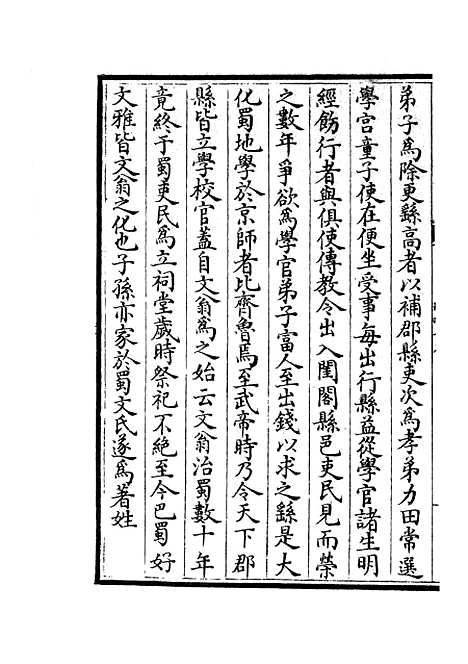 弟子爲除更繇高者以補郡縣吏次爲孝弟力田常選
學官童子使在便坐受事每出行縣益從學官諸生明
經飭行者與俱使傳教令出入閨閣縣邑吏民見而榮
之數年爭欲爲學官弟子富人至出錢以求之繇是大
化蜀地學於京師者比齊魯焉至武帝時乃令天下郡
縣皆立學校官蓋自文翁爲之始云文翁治蜀數十年
竟終于蜀吏民爲立祠堂歲時祭祀不絕至今巴蜀好
文雅皆文翁之化也子孫亦家於蜀文氏遂爲著姓